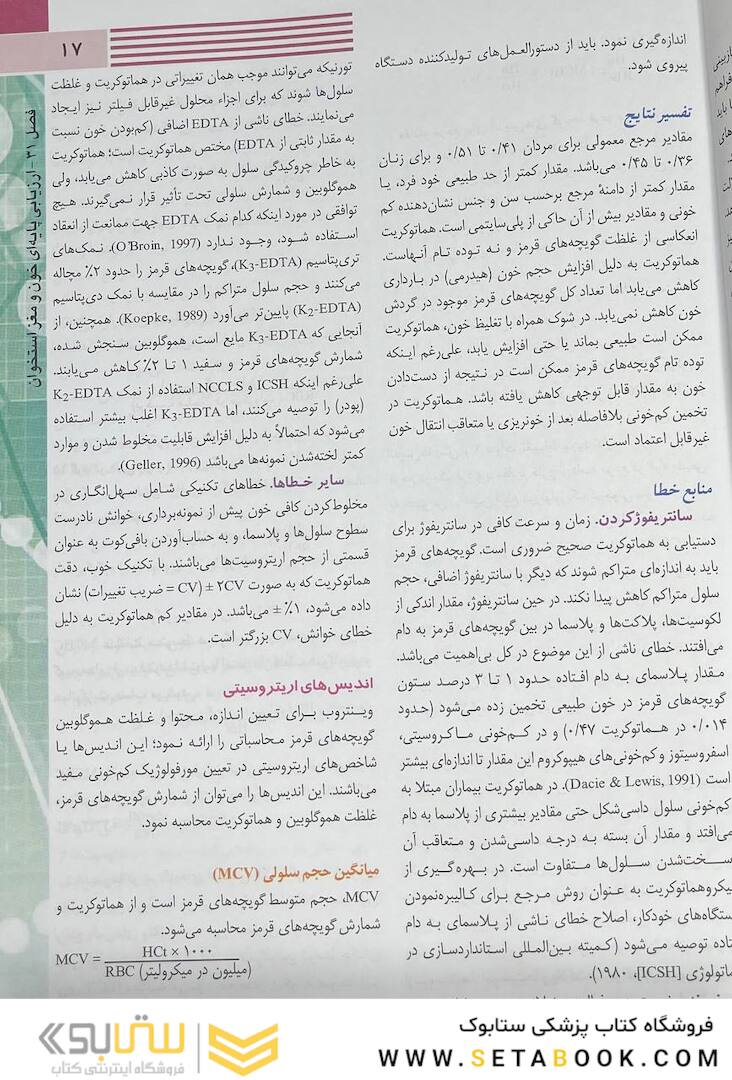 ۱۷
فصل ۳۱ - ارزیابی پایه‌ای خون و مغز استخوان
اندازه‌گیری نمود. باید از دستورالعمل‌های تولیدکننده دستگاه
پیروی شود.
تفسیر نتایج
مقادیر مرجع معمولی برای مردان ۰/۴۱ تا ۰/۵۱ و برای زنان
۰/۳۶ تا ۰/۴۵ می‌باشد. مقدار کمتر از حد طبیعی خود فرد، یا
مقدار کمتر از دامنهٔ مرجع برحسب سن و جنس نشان‌دهنده کم
خونی و مقادیر بیش از آن حاکی از پلی‌سایتمی است. هماتوکریت
انعکاسی از غلظت گویچه‌های قرمز و نه توده تام آنهاست.
هماتوکریت به دلیل افزایش حجم خون (هیدرمی) در بارداری
کاهش می‌یابد اما تعداد کل گویچه‌های قرمز موجود در گردش
خون کاهش نمی‌یابد. در شوک همراه با تغلیظ خون، هماتوکریت
ممکن است طبیعی بماند یا حتی افزایش یابد، علی‌رغم اینکه
توده تام گویچه‌های قرمز ممکن است در نتیجه از دست‌دادن
خون به مقدار قابل توجهی کاهش یافته باشد. هماتوکریت در
تخمین کم‌خونی بلافاصله بعد از خونریزی یا متعاقب انتقال خون
غیرقابل اعتماد است.
منابع خطا
سانتریفوژکردن. زمان و سرعت کافی در سانتریفوژ برای
دستیابی به هماتوکریت صحیح ضروری است. گویچه‌های قرمز
باید به اندازه‌ای متراکم شوند که دیگر با سانتریفوژ اضافی، حجم
سلول متراکم کاهش پیدا نکند. در حین سانتریفوژ، مقدار اندکی از
لکوسیت‌ها، پلاکت‌ها و پلاسما در بین گویچه‌های قرمز به دام
می‌افتند. خطای ناشی از این موضوع در کل بی‌اهمیت می‌باشد.
مقدار پلاسمای به دام افتاده حدود ۱ تا ۳ درصد ستون
گویچه‌های قرمز در خون طبیعی تخمین زده می‌شود (حدود
۰/۰۱۴ در هماتوکریت ۰/۴۷) و در کم‌خونی ماکروسیتی،
اسفروسیتوز و کم‌خونی‌های هیپوکروم این مقدار تا اندازه‌ای بیشتر
است (Dacie & Lewis, 1991). در هماتوکریت بیماران مبتلا به
کم‌خونی سلول داسی‌شکل حتی مقادیر بیشتری از پلاسما به دام
می‌افتد و مقدار آن بسته به درجه داسی‌شدن و متعاقب آن
سخت‌شدن سلول‌ها متفاوت است. در بهره‌گیری از
یکروهماتوکریت به عنوان روش مرجع برای کالیبره‌نمودن
ستگاه‌های خودکار، اصلاح خطای ناشی از پلاسمای به دام
تاده توصیه می‌شود (کمیته بین‌المللی استانداردسازی در
ماتولوژی [ICSH]، ۱۹۸۰).
تورنیکه می‌توانند موجب همان تغییراتی در هماتوکریت و غلظت
سلول‌ها شوند که برای اجزاء محلول غیرقابل فیلتر نیز ایجاد
می‌نمایند. خطای ناشی از EDTA اضافی (کم‌بودن خون نسبت
به مقدار ثابتی از EDTA) مختص هماتوکریت است؛ هماتوکریت
به خاطر چروکیدگی سلول به صورت کاذبی کاهش می‌یابد، ولی
هموگلوبین و شمارش سلولی تحت تأثیر قرار نمی‌گیرند. هیچ
توافقی در مورد اینکه کدام نمک EDTA جهت ممانعت از انعقاد
استفاده شود، وجود ندارد (O'Broin, 1997). نمک‌های
تری‌پتاسیم (K3-EDTA)، گویچه‌های قرمز را حدود ۲٪ مچاله
می‌کنند و حجم سلول متراکم را در مقایسه با نمک دی‌پتاسیم
(K2-EDTA) پایین‌تر می‌آورد (Koepke, 1989). همچنین، از
آنجایی که K3-EDTA مایع است، هموگلوبین سنجش شده،
شمارش گویچه‌های قرمز و سفید ۱ تا ۲٪ کاهش می‌یابند.
علی‌رغم اینکه ICSH و NCCLS استفاده از نمک K2-EDTA
(پودر) را توصیه می‌کنند، اما K3-EDTA اغلب بیشتر استفاده
می‌شود که احتمالاً به دلیل افزایش قابلیت مخلوط شدن و موارد
کمتر لخته‌شدن نمونه‌ها می‌باشد (Geller, 1996).
سایر خطاها. خطاهای تکنیکی شامل سهل‌انگاری در
مخلوط‌کردن کافی خون پیش از نمونه‌برداری، خوانش نادرست
سطوح سلول‌ها و پلاسما، و به حساب‌آوردن بافی‌کوت به عنوان
قسمتی از حجم اریتروسیت‌ها می‌باشند. با تکنیک خوب، دقت
هماتوکریت که به صورت ۲CV ± (CV = ضریب تغییرات) نشان
داده می‌شود، ۱٪ ± می‌باشد. در مقادیر کم هماتوکریت به دلیل
خطای خوانش، CV بزرگتر است.
اندیس‌های اریتروسیتی
وینتروب برای تعیین اندازه، محتوا و غلظت هموگلوبین
گویچه‌های قرمز محاسباتی را ارائه نمود؛ این اندیس‌ها یا
شاخص‌های اریتروسیتی در تعیین مورفولوژیک کم‌خونی مفید
می‌باشند. این اندیس‌ها را می‌توان از شمارش گویچه‌های قرمز،
غلظت هموگلوبین و هماتوکریت محاسبه نمود.
میانگین حجم سلولی (MCV)
MCV، حجم متوسط گویچه‌های قرمز است و از هماتوکریت و
شمارش گویچه‌های قرمز محاسبه می‌شود.
MCV = HCt × ۱۰۰۰
RBC (میلیون در میکرولیتر)
فروشگاه کتاب پزشکی ستابوک
WWW.SETABOOK.COM
ستابوک
فروشگاه اینترنتی کتاب